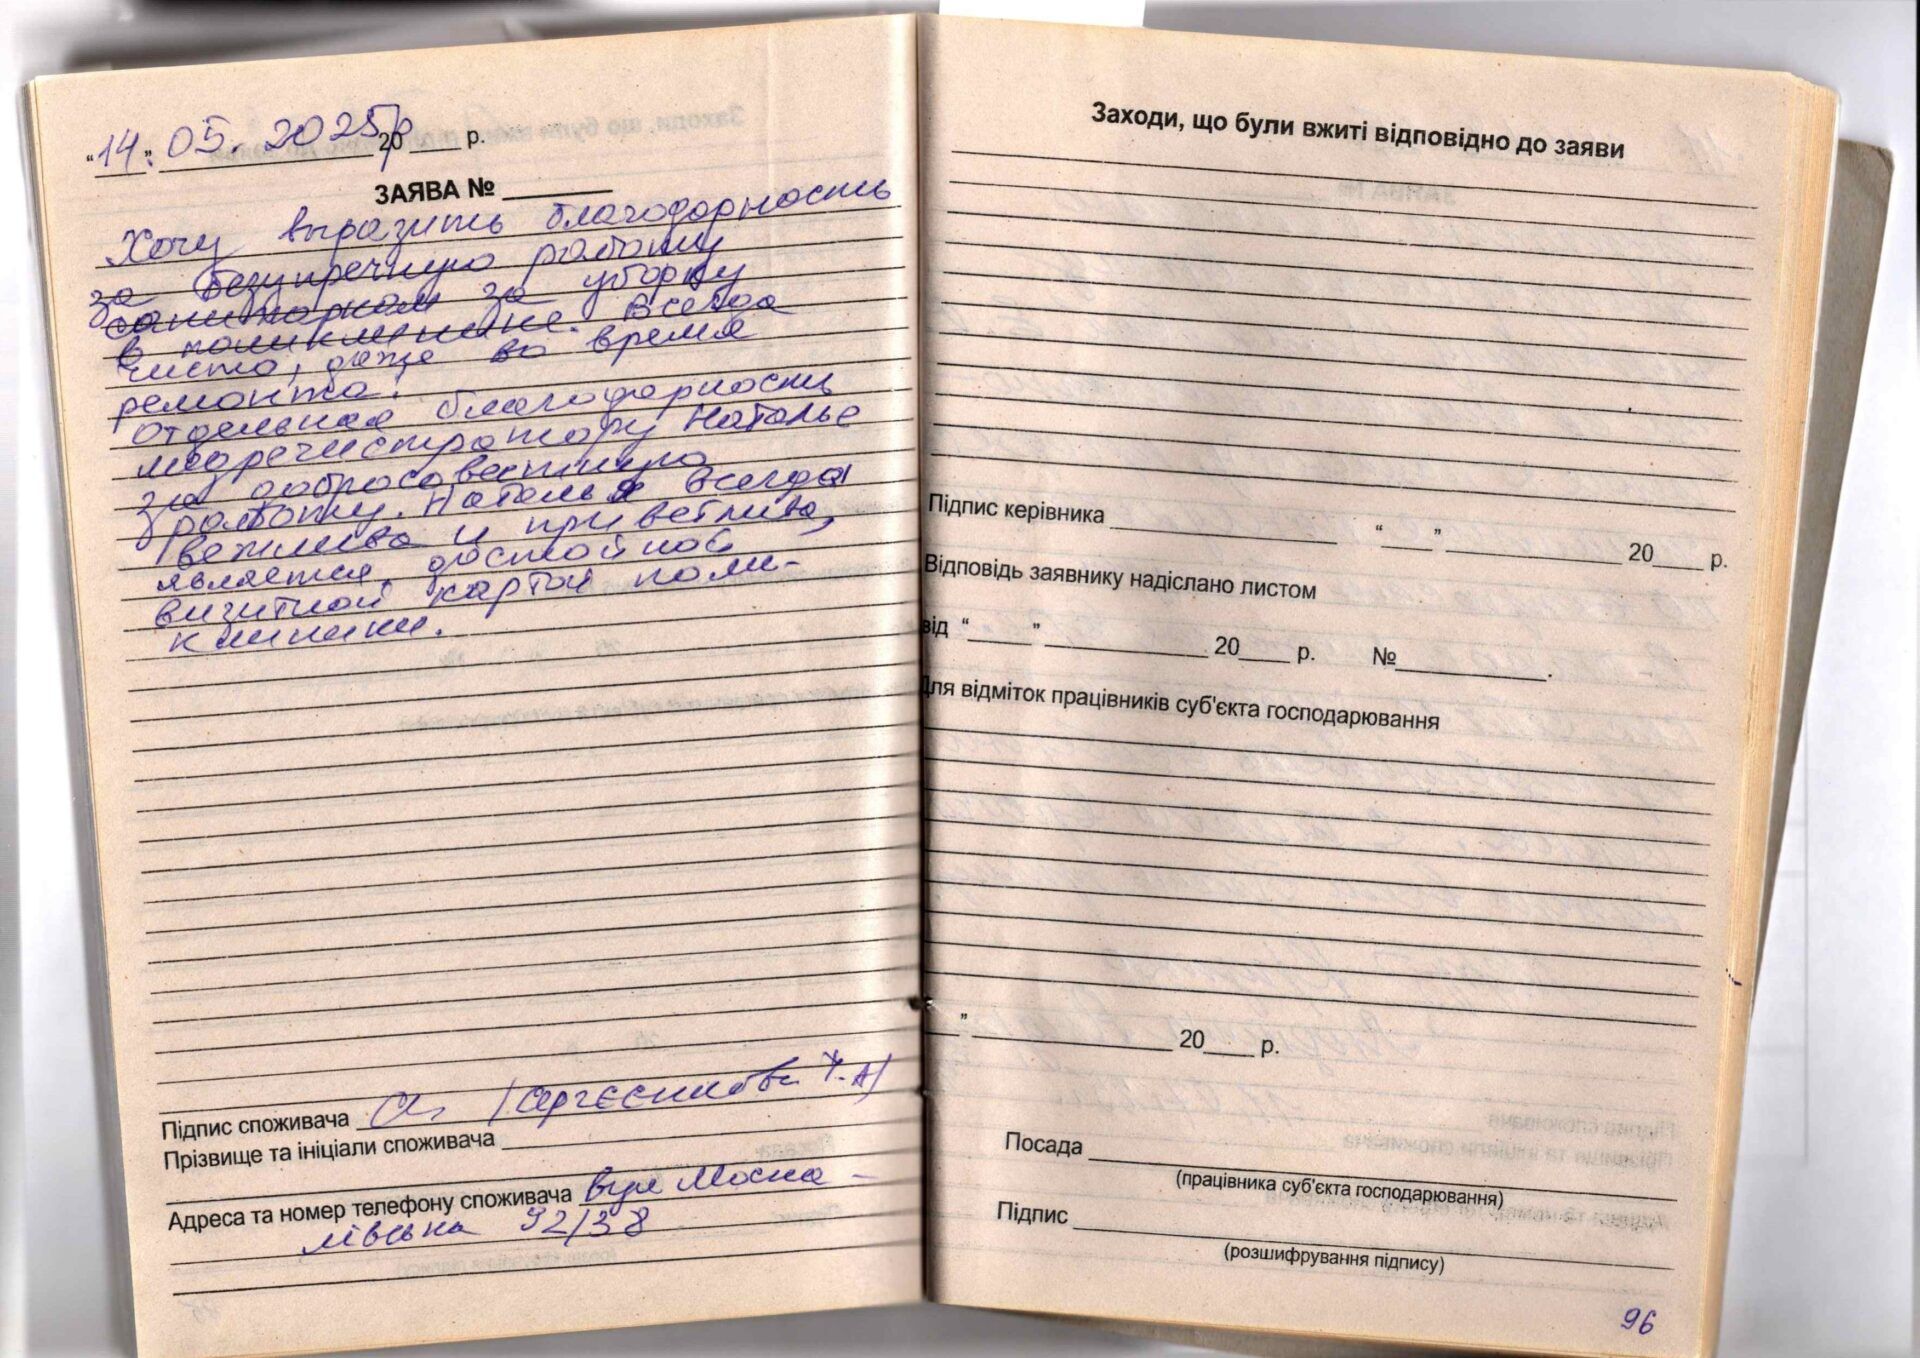 "14" 05. 2025р 20___ р.
ЗАЯВА № ______
Хочу выразить благодарность
за безупречную работу
санитаркам за уборку
в поликлинике. Всегда
чисто, даже во время
ремонта!
Отдельная благодарность
медрегистратору Наталье
за добросовестную
работу. Наталья всегда
вежлива и приветлива,
является достойной
визитной картой поли-
клиники.
Підпис споживача
Прізвище та ініціали споживача
Адреса та номер телефону споживача вул Моска-
лівська 92/38
Заходи, що були вжиті відповідно до заяви
Підпис керівника ______ "___" ______ 20___ р.
Відповідь заявнику надіслано листом
від "___" ______ 20___ р. №______.
Для відміток працівників суб'єкта господарювання
" ______ 20___ р.
Посада
(працівника суб'єкта господарювання)
Підпис
(розшифрування підпису)
96